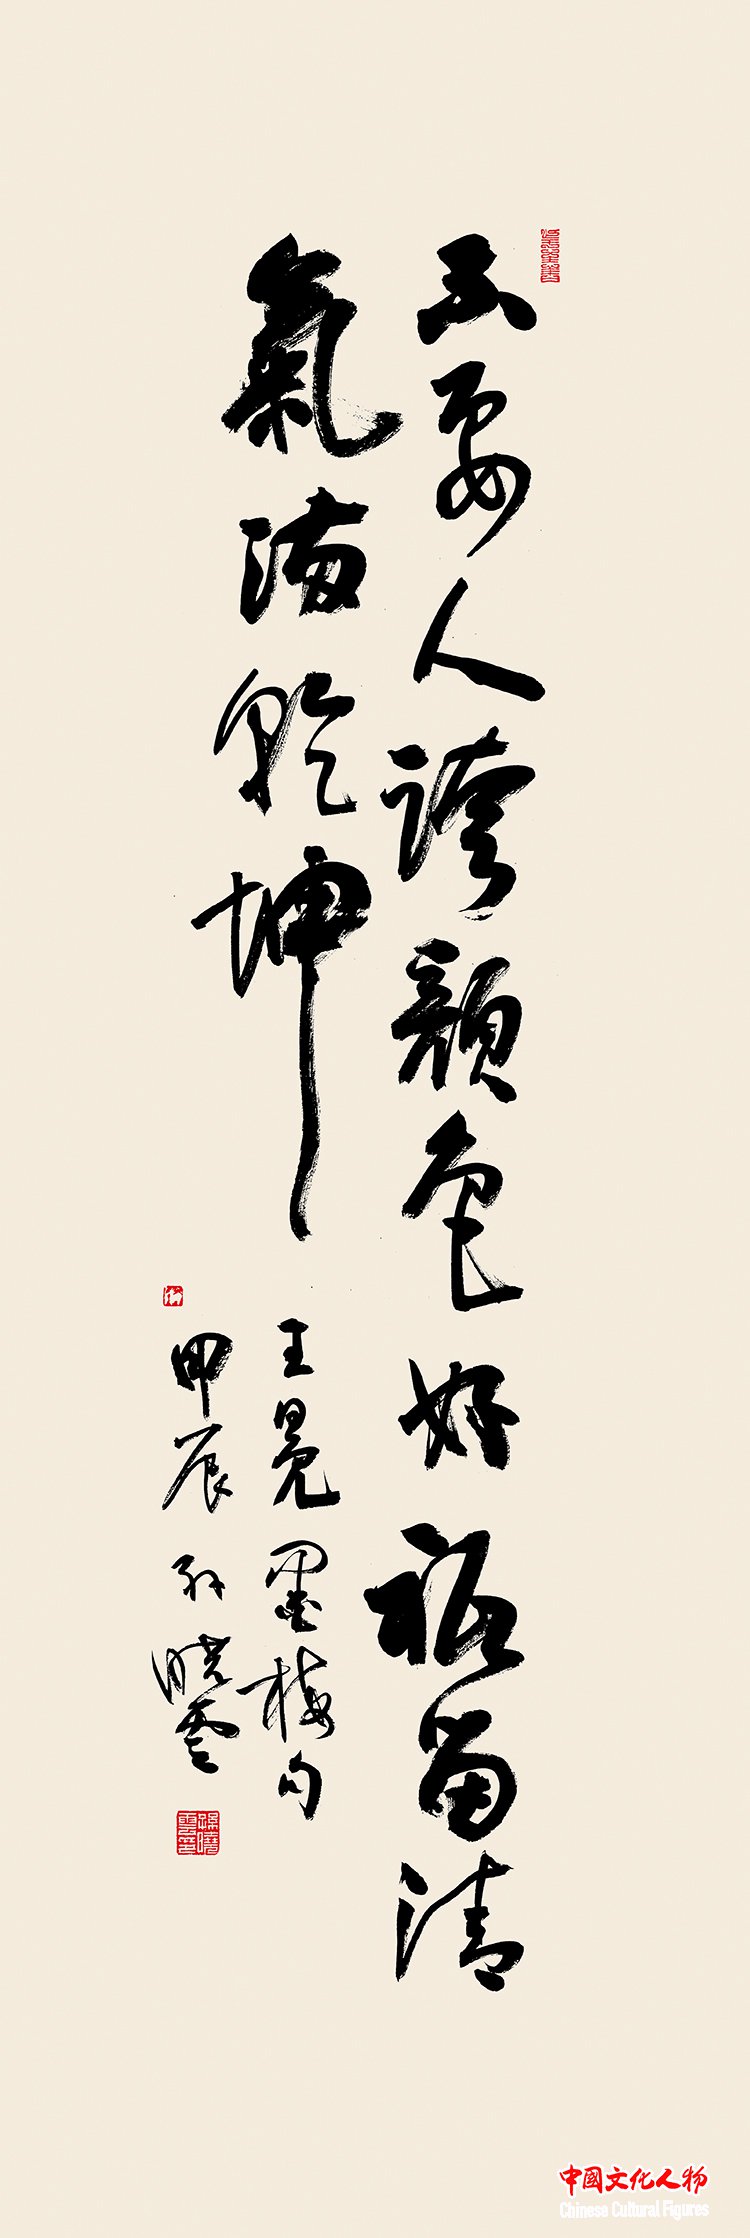 不要人誇顔色好祇留清
氣満乾坤
王冕墨梅句
甲辰孙晓雲
孫曉雲印
中国文化人物
Chinese Cultural Figures